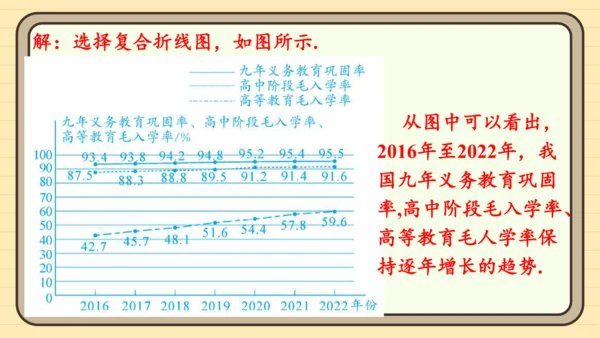 解：选择复合折线图，如图所示.
九年义务教育巩固率
高中阶段毛入学率
高等教育毛入学率
九年义务教育巩固率、高中阶段毛入学率、
高等教育毛入学率/%
100
90
80
70
60
50
40
30
20
10
0
93.4 93.8 94.2 94.8 95.2 95.4 95.5
87.5 88.3 88.8 89.5 91.2 91.4 91.6
42.7 45.7 48.1 51.6 54.4 57.8 59.6
2016 2017 2018 2019 2020 2021 2022 年份
从图中可以看出，
2016年至2022年，我
国九年义务教育巩固
率,高中阶段毛入学率、
高等教育毛人学率保
持逐年增长的趋势.